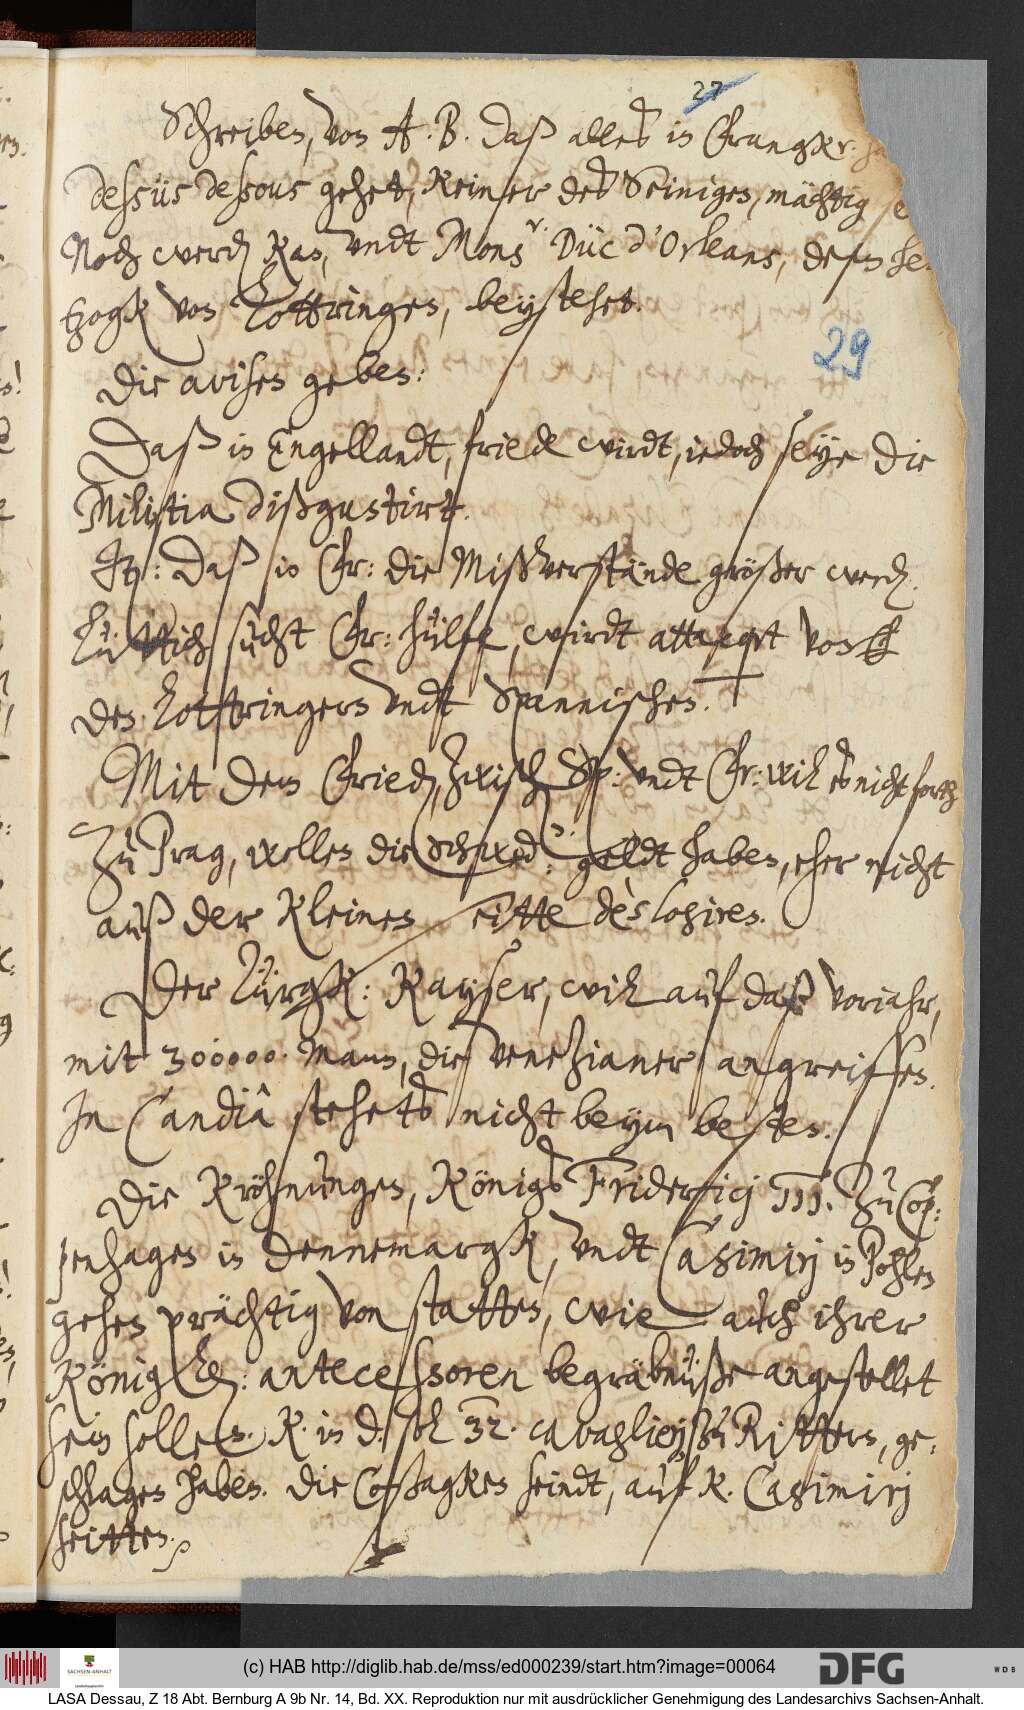 27
Schreiben, von A. B. daß alles in Franckr.
dessüs dessous gehet, keiner des Seinigen, mächtig
Noch werden kan, undt Mons.r Düc d'Orleans, dem her-
tzogk von Lottringen, beystehet.
29
Die avisen geben:
Daß in Engellandt, friede wirdt, iedoch seye die
Militia dißgustirt.
It: daß in Fr: die Mißverstände größer werden.
Lüttich sücht Fr: hülfe, wirdt attacqirt von
den Lottringern undt Spannischen.
Mit dem Frieden, zwischen Sp: undt Fr: wil es nicht forth.
Zu Prag, wollen die Schwed: geldt haben, eher nicht
auß der Kleinen seitte deslogiren.
Der Türgk: Kayser, wil auf daß vorjahr,
mit 300000. Mann, die Venezianer angreiffen.
In Candia stehets nicht beym besten.
Die Kröhnungen, Königs Friderici III. zu Cop-
penhagen in Dennemargk, undt Casimirj in Pohlen
gehen prächtig von statten, wie auch ihrer
Königl: antecessoren begräbnüße angestellet
sein sollen. K. in D. sol 32. cavaglierj zu Rittern, ge-
schlagen haben. Die Cossagken seindt, auf K. Casimirj
seitten.
(c) HAB http://diglib.hab.de/mss/ed000239/start.htm?image=00064
SACHSEN-ANHALT
DFG
WDB
LASA Dessau, Z 18 Abt. Bernburg A 9b Nr. 14, Bd. XX. Reproduktion nur mit ausdrücklicher Genehmigung des Landesarchivs Sachsen-Anhalt.